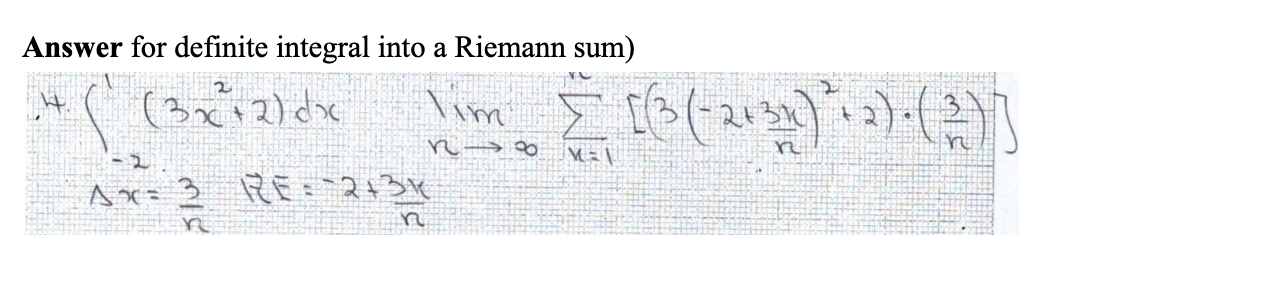 Answer for definite integral into a Riemann sum)
4. ∫₋₂¹ (3x²+2)dx lim n→∞ Σ k=1 n [(3(-2+3k/n)²+2)·(3/n)]
Δx = 3/n RE = -2+3k/n